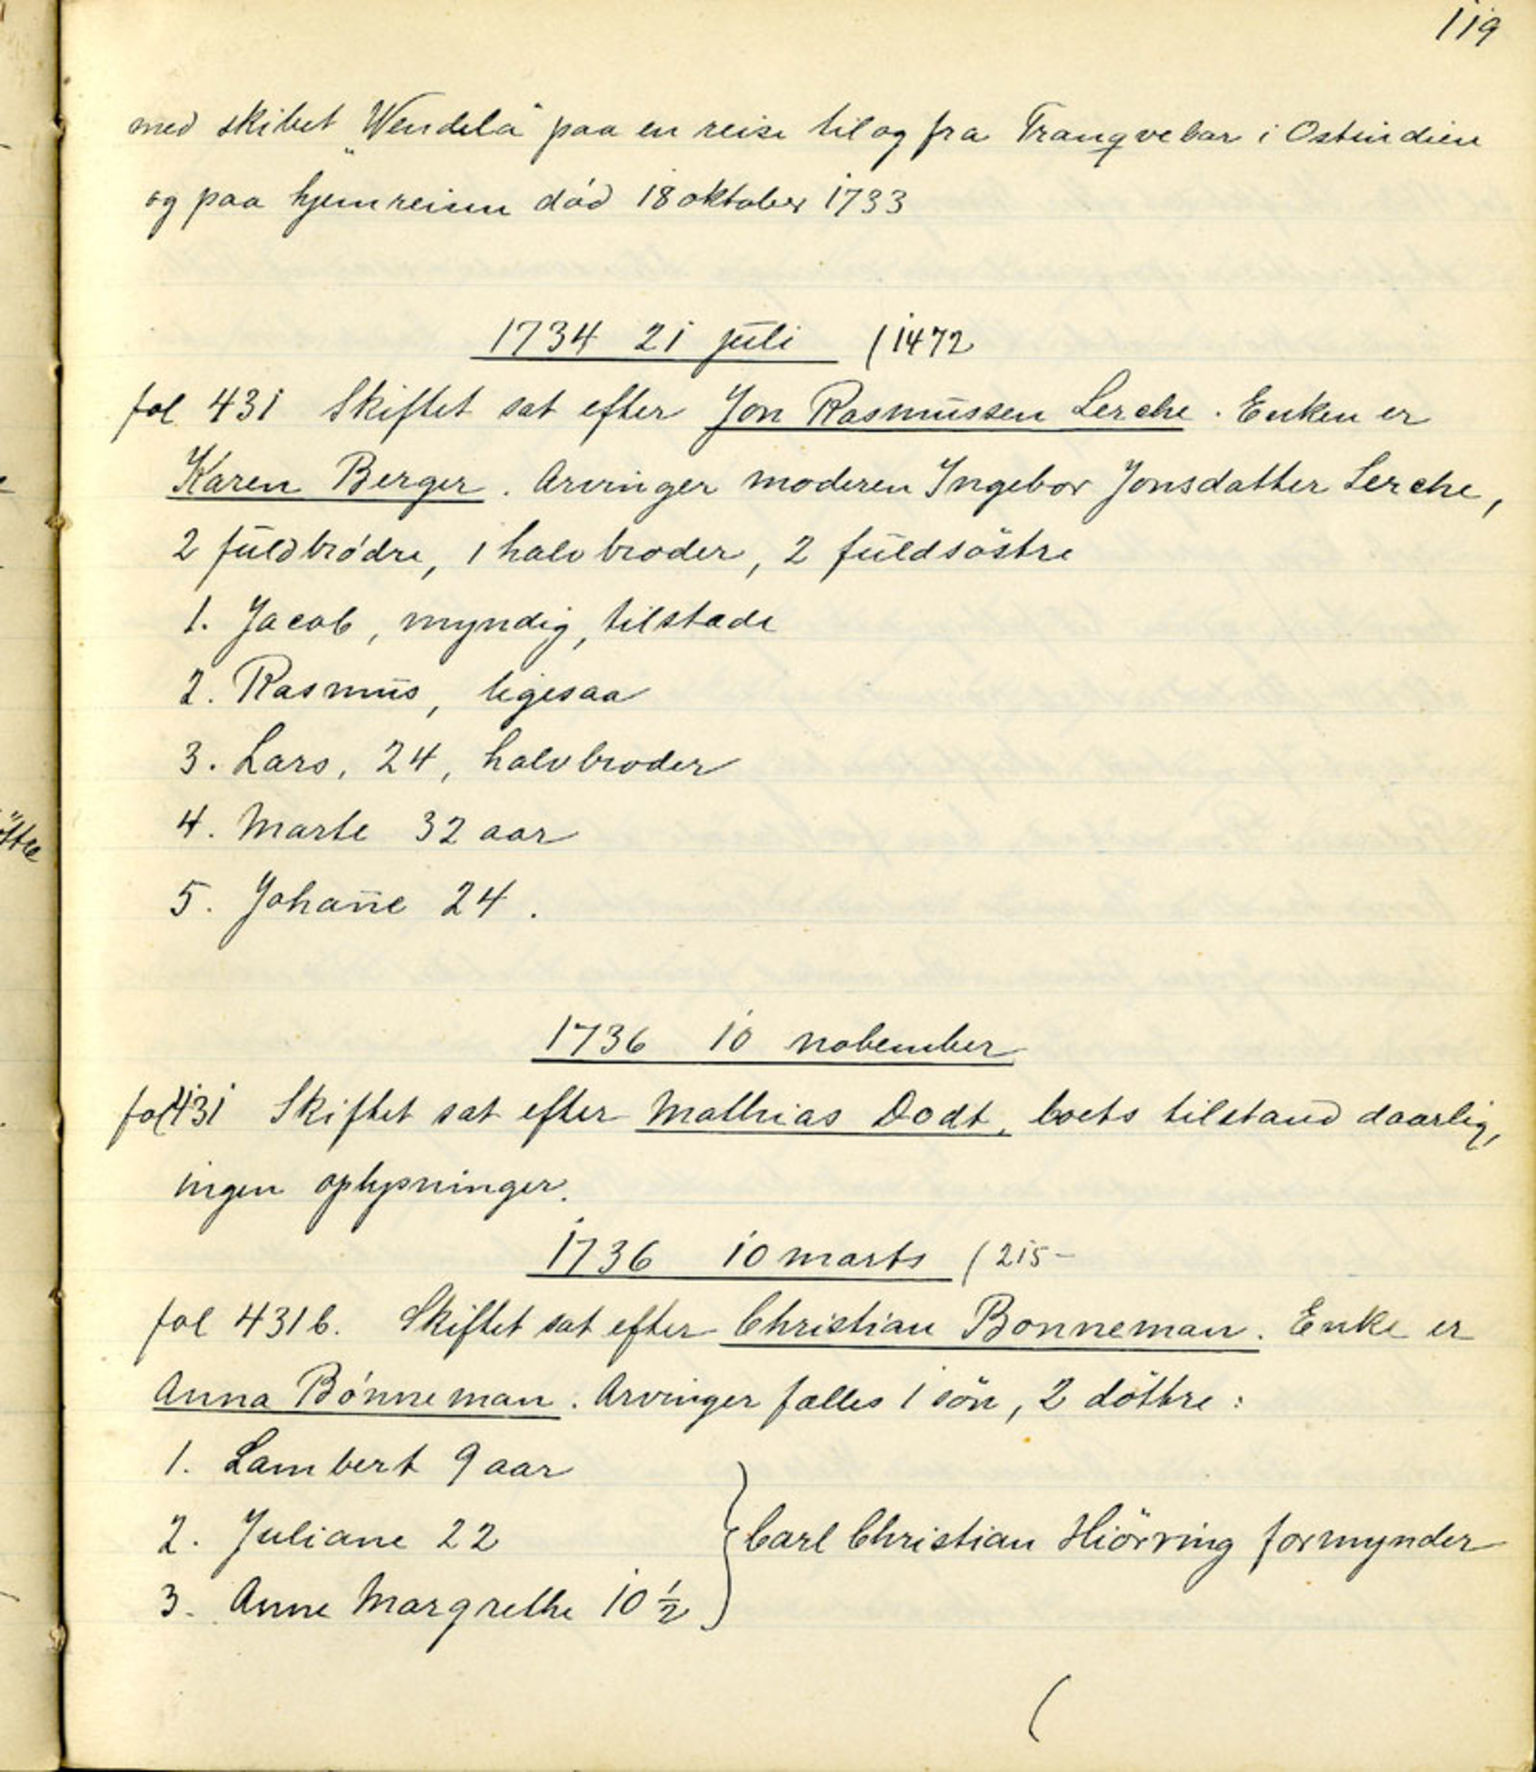 119
med skibet „Wendela“ paa en reise til og fra Tranqvebar i Ostindien
og paa hjemreisen död 18 oktober 1733
1734 21 juli (1472
fol 431 Skiftet sat efter Jon Rasmussen Lerche. Enken er
Karen Berger. Arvinger moderen Ingebor Jonsdatter Lerche,
2 fuldbrödre, 1 halvbroder, 2 fuldsöstre
1. Jacob, myndig, tilstæde
2. Rasmus, ligesaa
3. Lars, 24, halvbroder
4. Marte 32 aar
5. Johan̄e 24.
1736 10 nobember
fol 431 Skiftet sat efter Mathias Dodt, boets tilstand daarlig,
ingen oplysninger.
1736 10 marts (215-
fol 431 b. Skiftet sat efter Christian Bonneman. Enke er
Anna Bönneman. Arvinger fælles 1 sön, 2 döttre:
1. Lambert 9 aar
2. Juliane 22 } Carl Christian Hiörring formynder
3. Anne Margrethe 10 ½
(